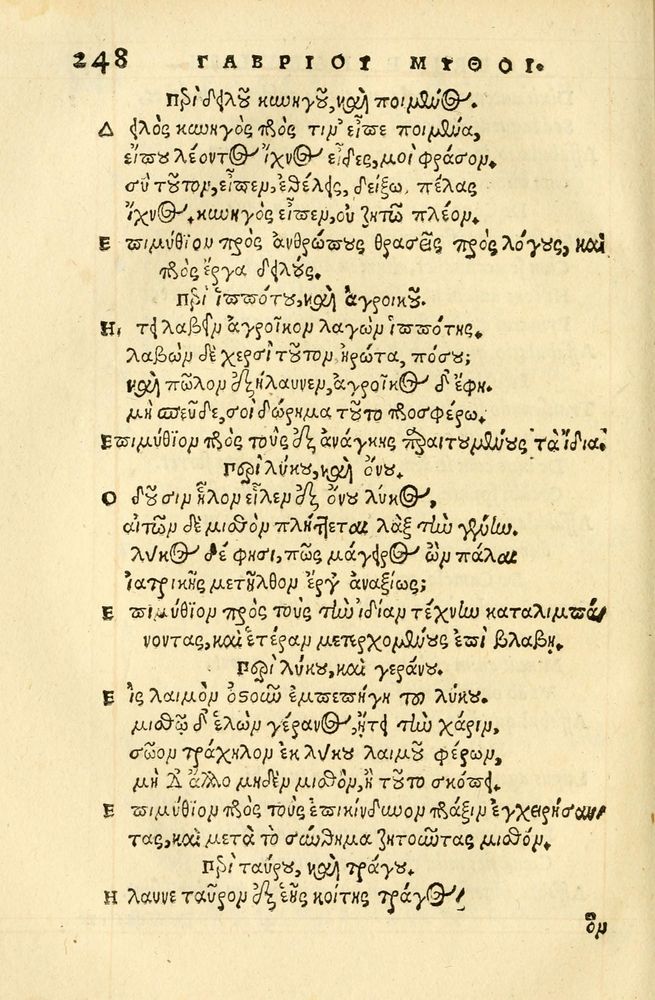 248 ΓΑΒΡΙΟΥ ΜΥΘΟΙ.
Περὶ δειλοῦ κυνηγοῦ, καὶ ποιμένος.
Δειλὸς κυνηγὸς πρός τιν' εἶπε ποιμένα,
εἴπου λέοντος ἴχνος εἶδες, μοι φράσον.
σὺ τοῦτον, εἶπεν, ἐθέλεις, δείξω πέλας
ἴχνος. κυνηγὸς εἶπεν, οὐ ζητῶ πλέον.
Ἐπιμύθιον πρὸς ἀνθρώπους θρασεῖς πρὸς λόγους, καὶ
πρὸς ἔργα δειλούς.
Περὶ ἱππότου, καὶ ἀγροίκου.
Ἤιτει λαβεῖν ἀγροῖκον λαγὼν ἱππότης.
λαβὼν δὲ χερσὶ τοῦτον ἠρώτα, πόσου;
καὶ πῶλον ἐξήλαυνεν, ἀγροῖκος δ' ἔφη.
μὴ σπεῦδε, σοὶ δώρημα τοῦτο προσφέρω.
Ἐπιμύθιον πρὸς τοὺς ἐξ ἀνάγκης προϊεμένους τὰ ἴδια.
Περὶ λύκου, καὶ ὄνου.
Ὀδοῦσιν ἧλον εἷλεν ἐξ ὄνου λύκος,
αἰτῶν δὲ μισθὸν πλήττεται λὰξ τὴν γένυν.
λύκος δέ φησι, πῶς μάγειρος ὢν πάλαι
ἰατρικῆς μετῆλθον ἔργ' ἀναξίως;
Ἐπιμύθιον πρὸς τοὺς τὴν ἰδίαν τέχνην καταλιμπά
νοντας, καὶ ἑτέραν μετερχομένους ἐπὶ βλάβῃ.
Περὶ λύκου, καὶ γεράνου.
Εἰς λαιμὸν ὀστοῦν ἐμπεπήγη τῷ λύκου.
μισθῷ δ' ἑλὼν γέρανος, ᾔτει τὴν χάριν,
σῶον τράχηλον ἐκ λύκου λαιμοῦ φέρων,
μὴ δ' ἄλλο μηδὲν μισθὸν, ἢ τοῦτο σκόπει.
Ἐπιμύθιον πρὸς τοὺς ἐπικίνδυνον πρᾶξιν ἐγχειρήσαν
τας, καὶ μετὰ τὸ σώθημα ζητοῦντας μισθόν.
Περὶ ταύρου, καὶ τράγου.
Ἤλαυνε ταῦρον ἐξ ἑῆς κοίτης τράγος,
ὃν